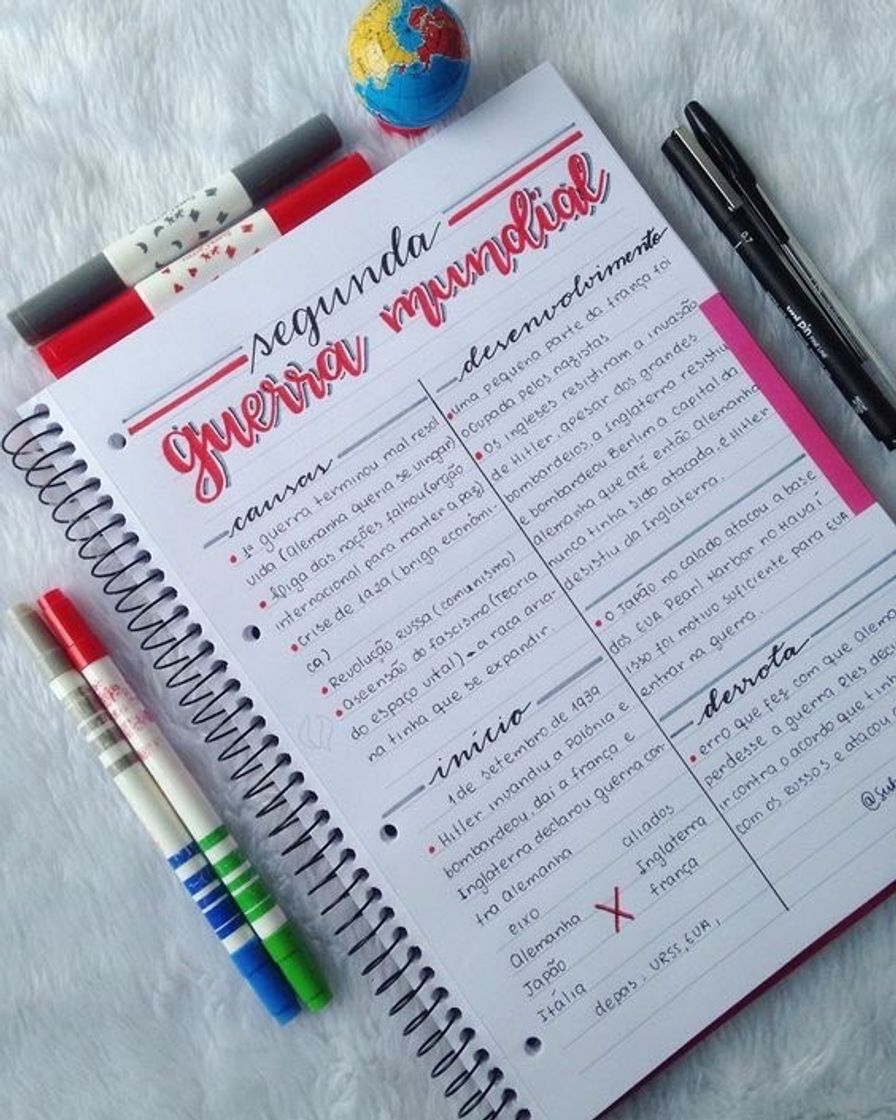 segunda
guerra mundial
causas
1ª guerra terminou mal resol
vida (alemanha queria se vingar)
Aliga das nações falhou (orgão
internacional para manter a paz)
crise de 1929 (briga econômi-
ca)
Revolução Russa (comunismo)
ascensão do fascismo (teoria
do espaço vital) → a raça aria-
na tinha que se expandir.
início
1 de setembro de 1939
Hitler invandiu a Polônia e
bombardeou, daí a frança e
Inglaterra declarou guerra con-
tra alemanha
eixo
Alemanha
Japão
Itália
X
aliados
Inglaterra
frança
depois: URSS, EUA,
desenvolvimento
uma pequena parte da frança foi
ocupada pelos nazistas
os ingleses resistiram a invasão
de Hitler, apesar dos grandes
bombardeios, a Inglaterra resistiu
e bombardeou Berlim a capital da
alemanha que até então alemanha
nunca tinha sido atacada, e Hitler
desistiu da Inglaterra.
o Japão no calado atacou a base
dos EUA Pearl Harbor no Havaí
isso foi motivo suficiente para EUA
entrar na guerra.
derrota
erro que fez com que Alem
perdesse a guerra Eles deci
ir contra o acordo que tin
com os Russos e atacou
uni pin
0.7